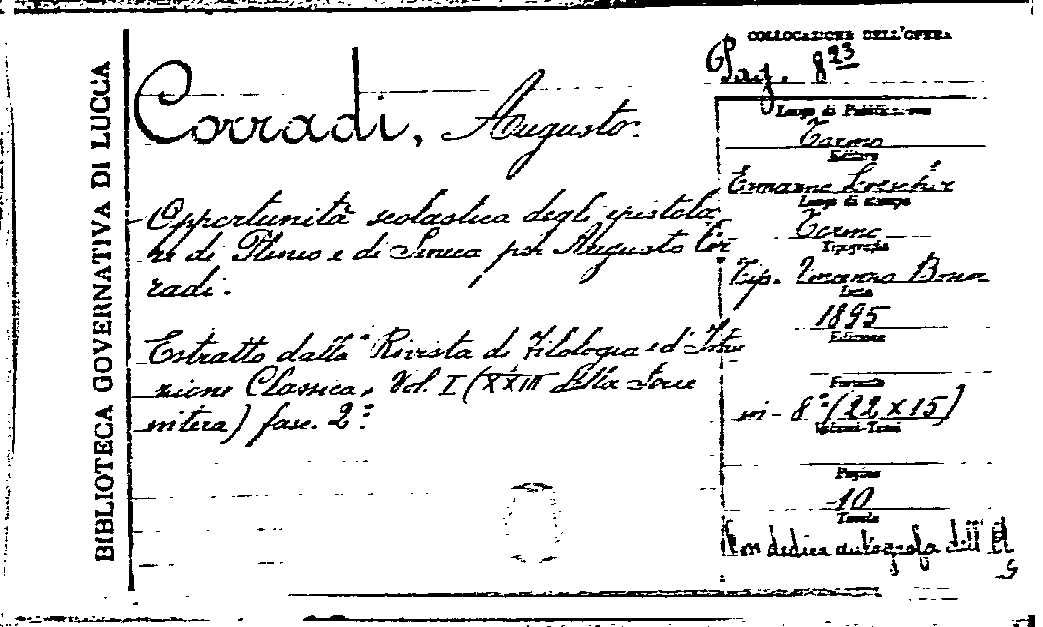 BIBLIOTECA GOVERNATIVA DI LUCCA
COLLOCAZIONE DELL'OPERA
Pag. 823
Corradi, Augusto.
Opportunità scolastica degli epistola
ri di Plinio e di Seneca per Augusto Cor
radi.
Estratto dalla "Rivista di Filologia e d'Istru
zione Classica, Vol. I (XXIII della Serie
intera) fasc. 2º
Luogo di Pubblicazione
Torino
Editore
Ermanno Loescher
Luogo di stampa
Torino
Tipografia
Tip. Vincenzo Bona
Data
1895
Edizione
Formato
in-8º (22 x 15)
Volumi-Tomi
Pagine
10
Tavole
Con dedica autografa dell'